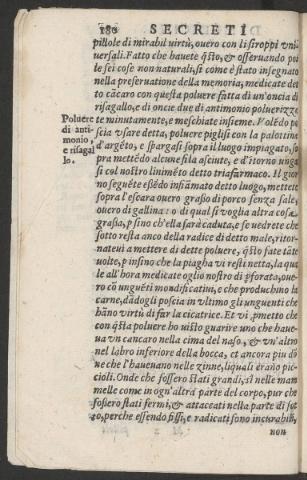 180 SECRETI
pillole di mirabil virtù, ouero con li siroppi vni
uersali. Fatto che hauete q̃sto, & osseruando poi
le sei cose non naturali, si come è stato insegnato
nella preseruatione della memoria, medicate det
to cãcaro con questa poluere fatta di vn'oncia di
risagallo, e di oncie due di antimonio poluerizza
te minutamente, e meschiate insieme. Volẽdo po
scia vsare detta, poluere piglisi con la palottina
d'argẽto, e spargasi sopra il luogo impiagato, so
pra mettẽdo alcune fila asciute, e d'itorno unga
si col nostro linimẽto detto triafarmaco. Il gior
no seguẽte essẽdo infiãmato detto luogo, mettete
sopra l'escara ouero grasso di porco senza sale,
ouero di gallina: o di qual si voglia altra cosa
grassa, p sino ch'ella sarà caduta, e se vedrete che
sotto resta anco della radice di detto male, ritor-
nateui a mettere di dette poluere, q̃sto fate tãte
uolte, p insino che la piaga vi resti netta, la qua
le all'hora medicate oglio nostro di pforata, oue-
ro cõ unguẽti mondificatiui, e che produchino la
carne, dãdogli poscia in vltimo gli unguenti che
hãno virtù di far la cicatrice. Et vi pmetto che
con q̃sta poluere ho uisto guarire uno che haue-
ua vn cancaro nella cima del naso, & vn'altro
nel labro inferiore della bocca, et ancora piu dõ
ne che l'haueuano nelle zinne, liquali erano pic-
cioli. Onde che fossero stati grandi, sì nelle mam
melle come in ogn'altra parte del corpo, pur che
fossero stati fermi, & attaccati nella parte di sot
to, perche essendo fissi, e radicati sono incurabili,
non
Poluere
di anti-
monio,
e risagal
lo.